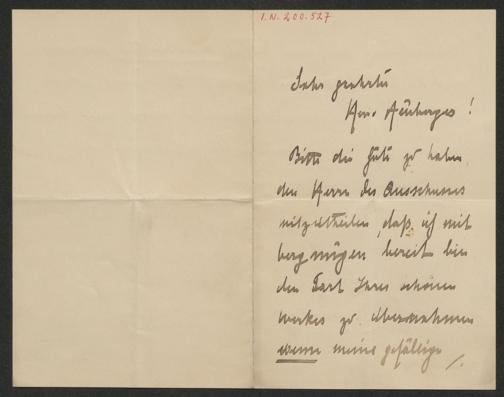 I.N. 200.527
Sehr geehrter
Herr Heuberger!
Bitte die Güte zu haben,
den Herrn des Ausschusses
mitzutheilen, daß ich mit
vergnügen bereit bin
den Part Ihres schönen
Werkes zu übernehmen
wenn meine gefällige